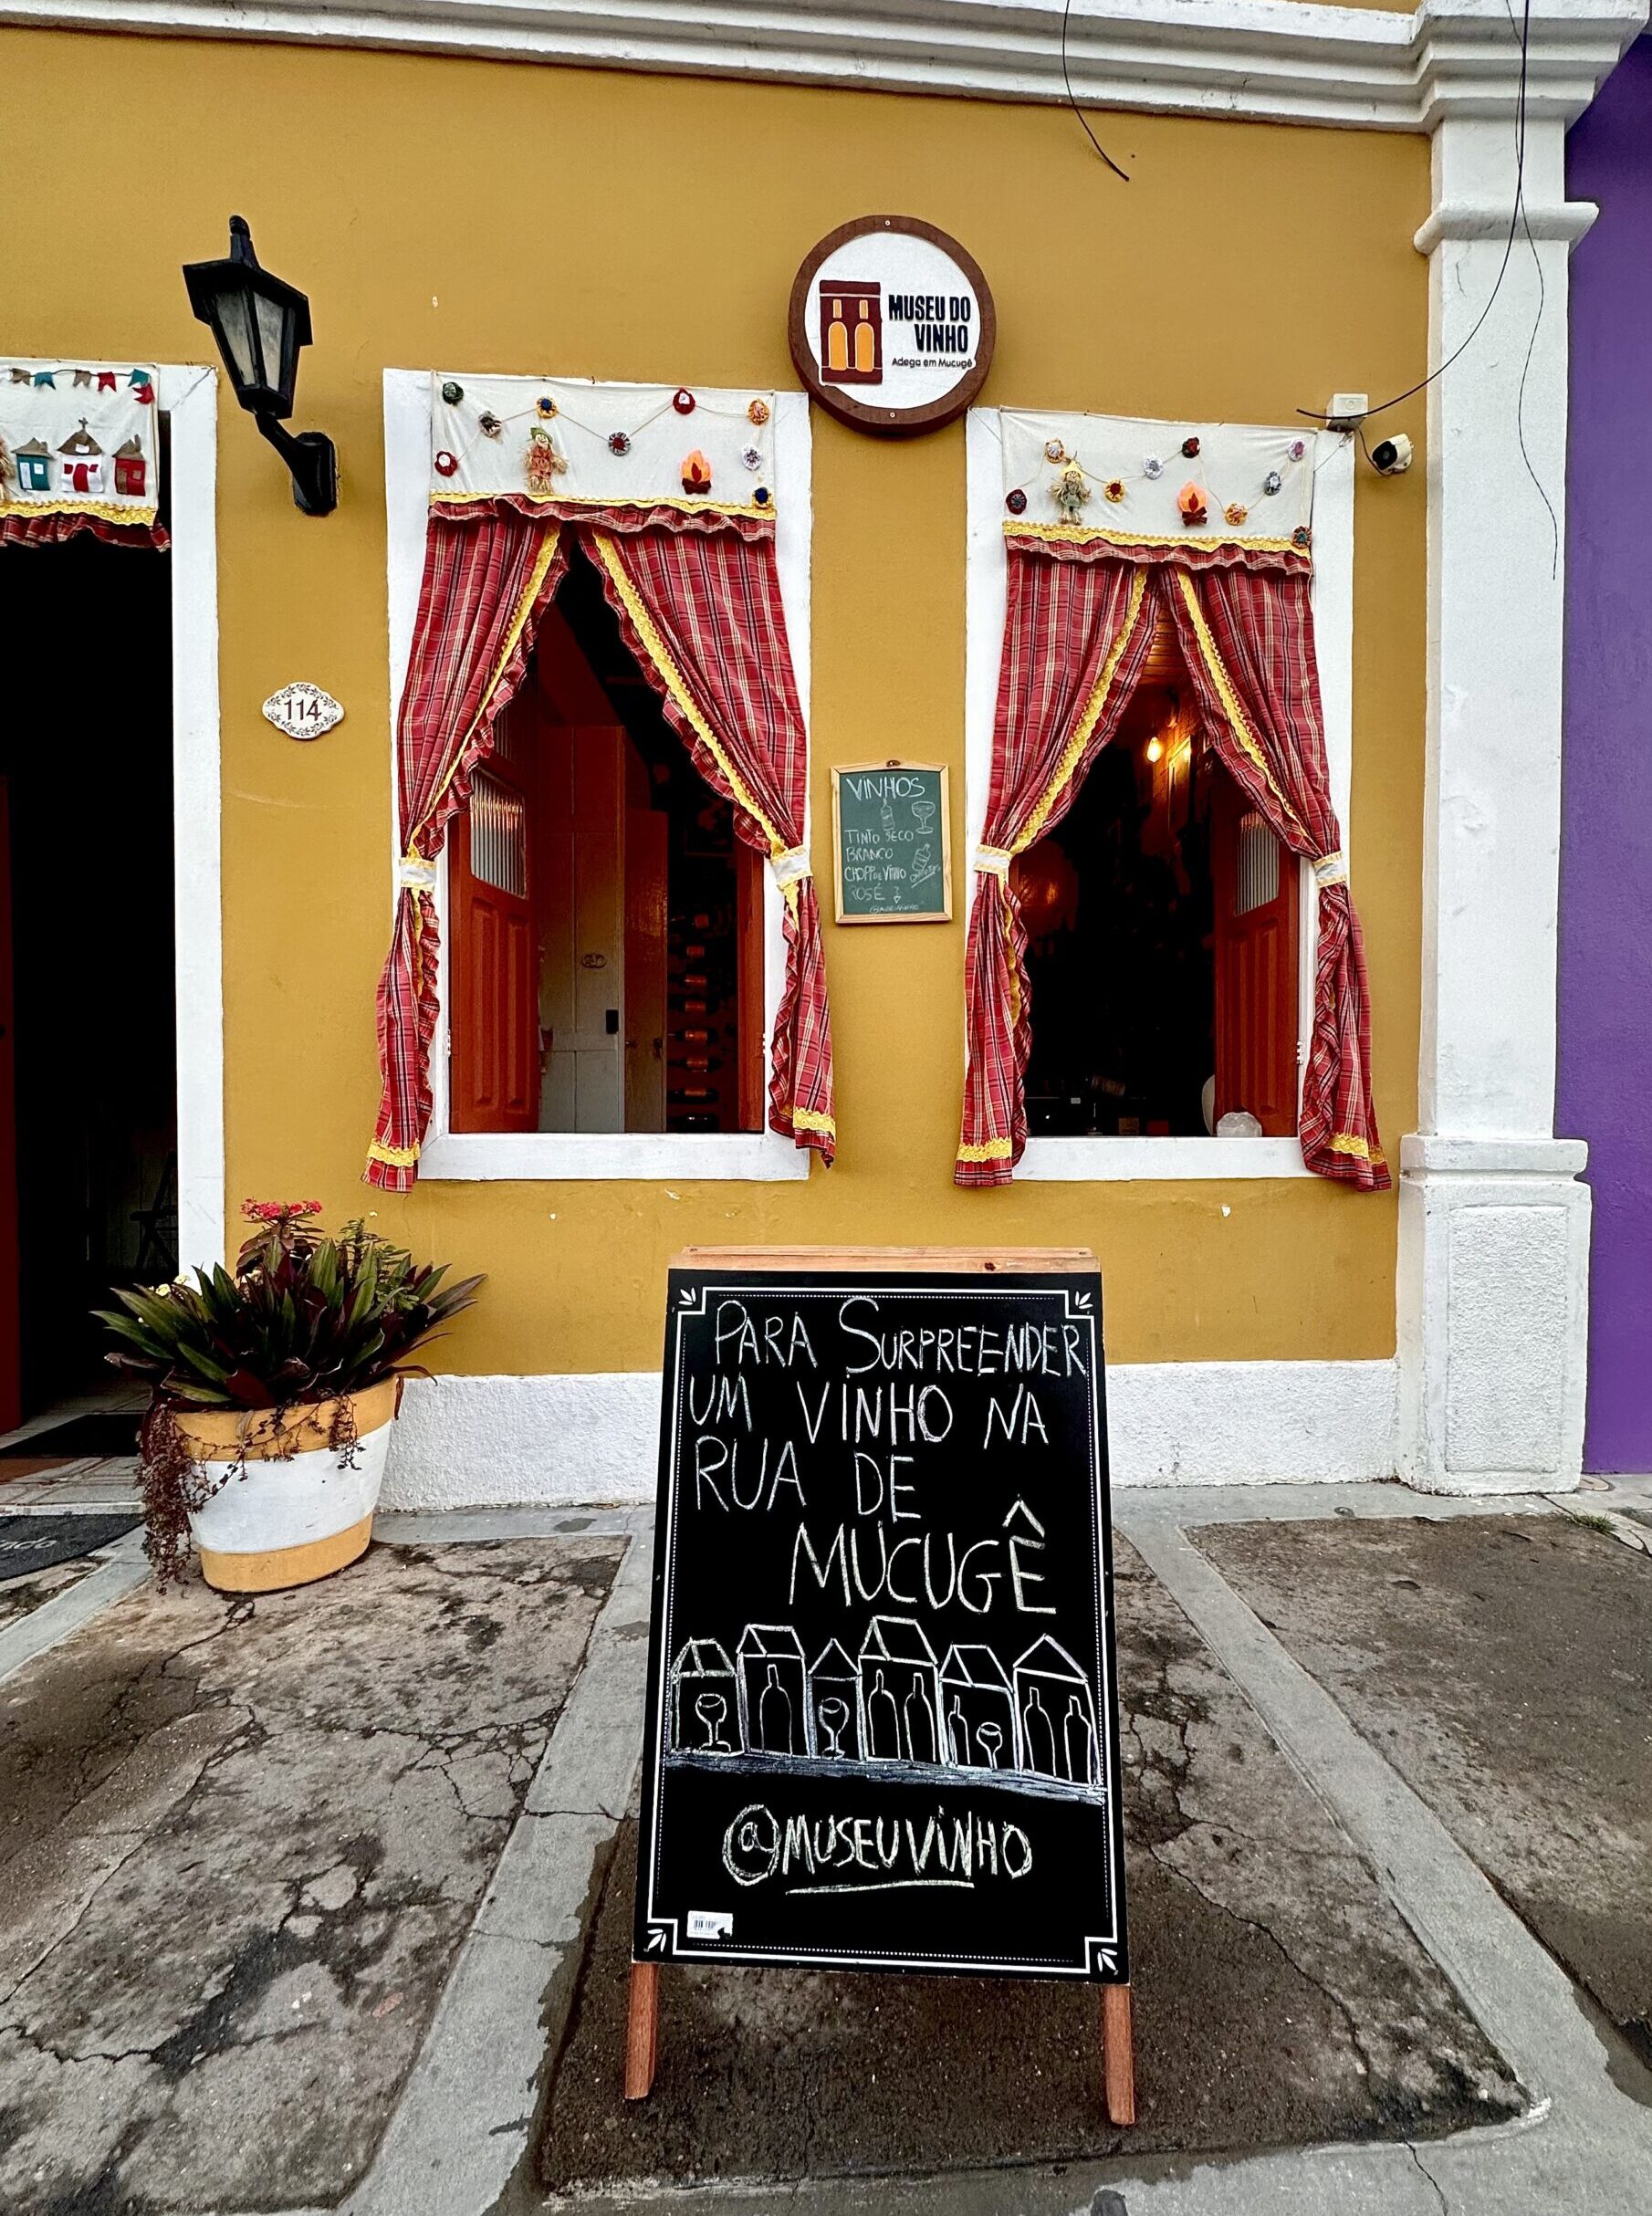 MUSEU DO
VINHO
Adega em Mucugê
114
VINHOS
TINTO SECO
BRANCO
CHOPP DE VINHO
ROSÉ
PARA SURPREENDER
UM VINHO NA
RUA DE
MUCUGÊ
@MUSEUVINHO